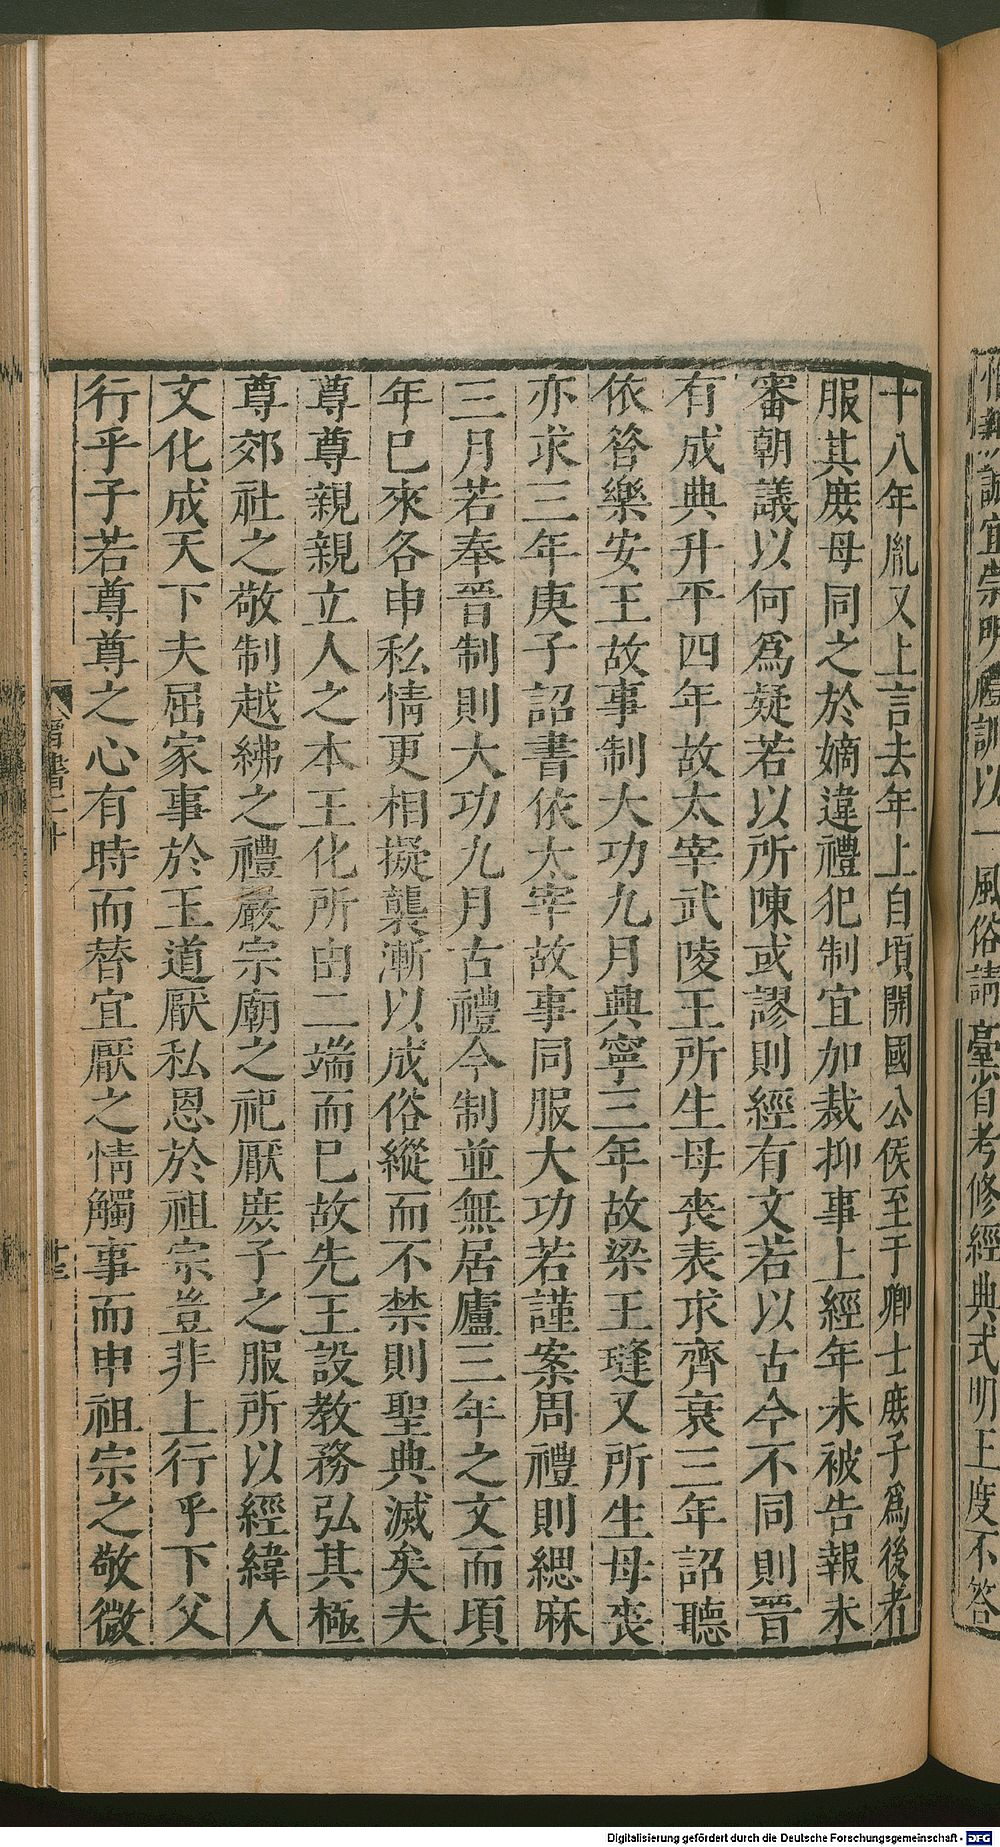 十八年胤又上言去年上自頃開國公侯至于卿士庻子爲後者
服其庻母同之於嫡違禮犯制宜加裁抑事上經年未被告報未
審朝議以何爲疑若以所陳或謬則經有文若以古今不同則晉
有成典升平四年故太宰武陵王所生母喪表求齊衰三年詔聽
依昝樂安王故事制大功九月興寧三年故梁王㻴又所生母喪
亦求三年庚子詔書依太宰故事同服大功若謹案周禮則緦麻
三月若奉晉制則大功九月古禮今制並無居廬三年之文而頃
年已來各申私情更相擬襲漸以成俗縱而不禁則聖典滅矣夫
尊尊親親立人之本王化所由二端而已故先王設教務弘其極
尊郊社之敬制越紼之禮嚴宗廟之祀厭庻子之服所以經緯人
文化成天下夫屈家事於王道厭私恩於祖宗豈非上行乎下父
行乎子若尊尊之心有時而替宜厭之情觸事而申祖宗之敬微
晉書二十
十三
禮訓以一風俗請臺省考修經典式明王度不答
Digitalisierung gefördert durch die Deutsche Forschungsgemeinschaft - DFG